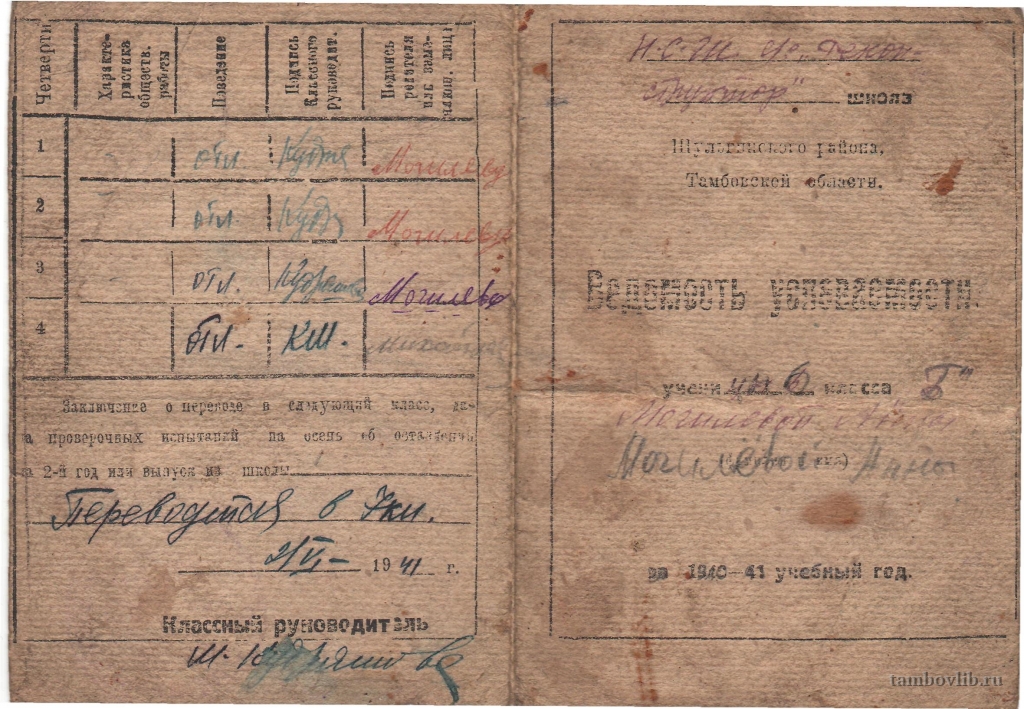 Четверти
Характе-
ристика
обществ.
работы
Поведение
Подпись
Классного
руководит.
Подпись
родителя
или заме-
1 отл. Могилева
2 отл. Куд Могилева
3 отл. Могилева
4 отл. К.М.
Заключение о переводе в следующий класс,
а проверочных испытаний на осень об оставлении
а 2-й год или выпуск из школы
Переводится в 7 кл.
21 VI - 1941 г.
Классный руководитель
М. Кудряшова
Н.С.Ш.
школа
Шульгинского района,
Тамбовской области.
Ведомость успеваемости.
учени цы 6 класса "Б"
Могилевой
Могилёвой Анны
за 1940-41 учебный год.
tambovlib.ru